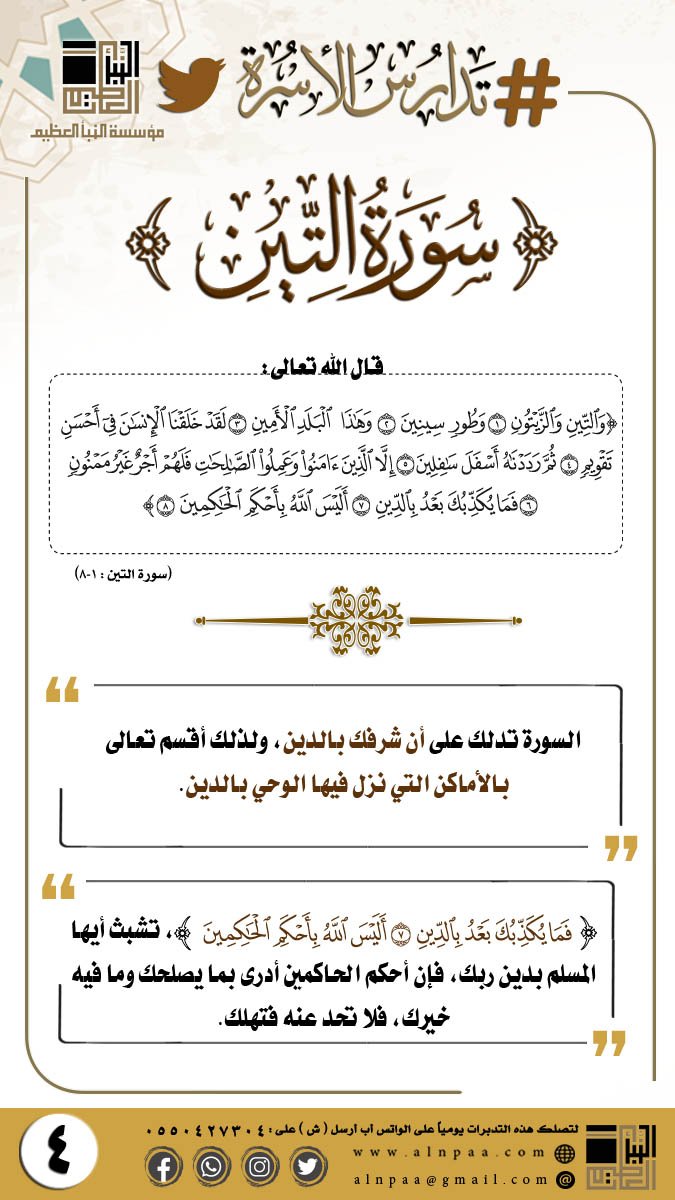 #تَدَارُس الأُسْرَة
النبأ العظيم
مؤسسة النبأ العظيم
﴿سُورَةُ التِّينِ﴾
قال الله تعالى:
﴿وَٱلتِّينِ وَٱلزَّيْتُونِ ١ وَطُورِ سِينِينَ ٢ وَهَٰذَا ٱلْبَلَدِ ٱلْأَمِينِ ٣ لَقَدْ خَلَقْنَا ٱلْإِنسَٰنَ فِىٓ أَحْسَنِ
تَقْوِيمٍ ٤ ثُمَّ رَدَدْنَٰهُ أَسْفَلَ سَٰفِلِينَ ٥ إِلَّا ٱلَّذِينَ ءَامَنُوا۟ وَعَمِلُوا۟ ٱلصَّٰلِحَٰتِ فَلَهُمْ أَجْرٌ غَيْرُ مَمْنُونٍ
٦ فَمَا يُكَذِّبُكَ بَعْدُ بِٱلدِّينِ ٧ أَلَيْسَ ٱللَّهُ بِأَحْكَمِ ٱلْحَٰكِمِينَ ٨﴾
(سورة التين : ١-٨)
السورة تدلك على أن شرفك بالدين، ولذلك أقسم تعالى
بالأماكن التي نزل فيها الوحي بالدين.
﴿فَمَا يُكَذِّبُكَ بَعْدُ بِٱلدِّينِ ٧ أَلَيْسَ ٱللَّهُ بِأَحْكَمِ ٱلْحَٰكِمِينَ﴾، تشبث أيها
المسلم بدين ربك، فإن أحكم الحاكمين أدرى بما يصلحك وما فيه
خيرك، فلا تحد عنه فتهلك.
لتصلك هذه التدبرات يومياً على الواتس آب ارسل ( ش ) على : ٠٥٥٠٤٢٧٣٠٤
www.alnpaa.com
alnpaa@gmail.com @
٤
النبأ العظيم